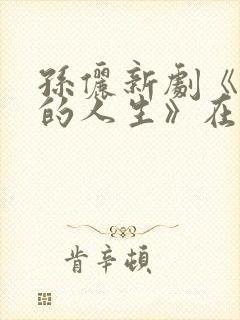 孫儷新劇《
的人生》在
肯辛頓